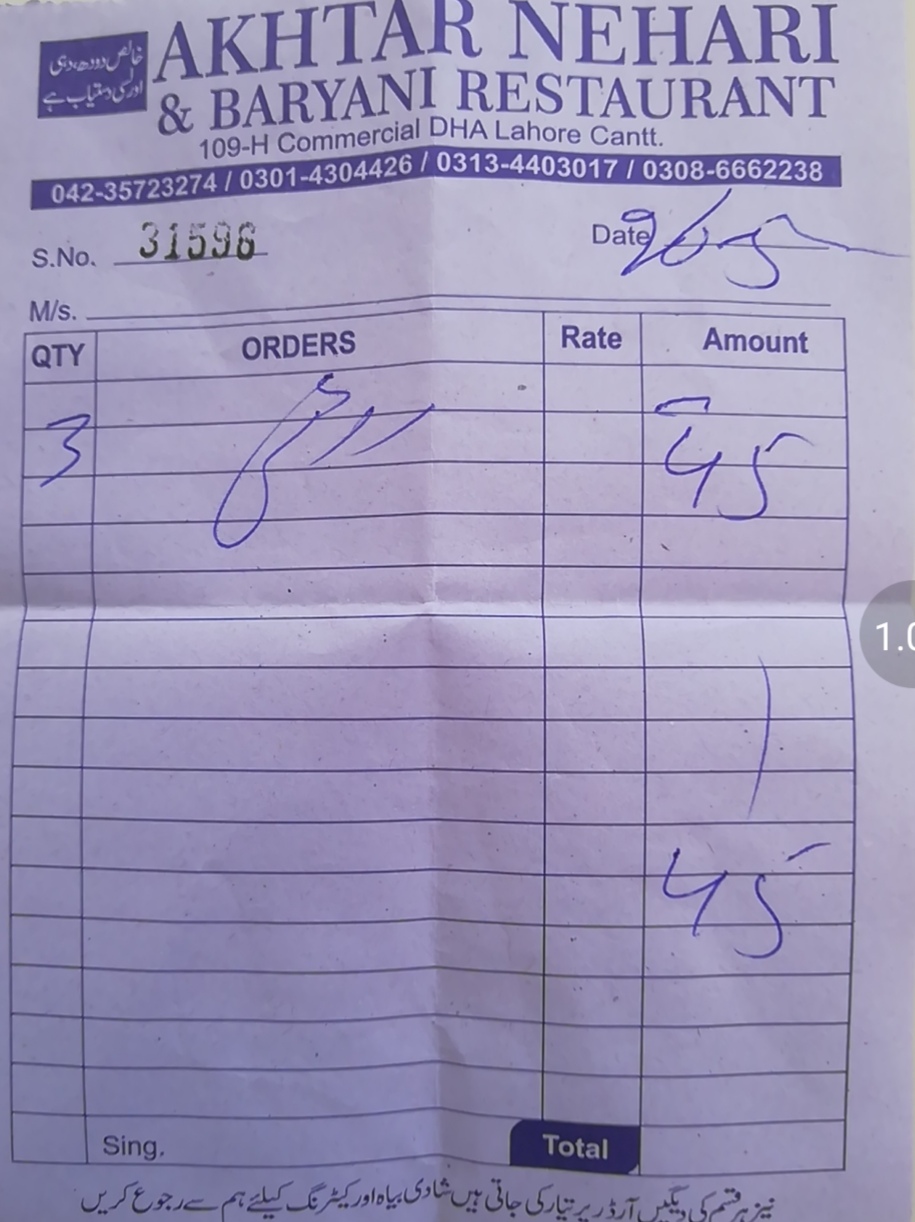 خالص دودھ، دہی
اور لسی دستیاب ہے
AKHTAR NEHARI
& BARYANI RESTAURANT
109-H Commercial DHA Lahore Cantt.
042-35723274 / 0301-4304426 / 0313-4403017 / 0308-6662238
S.No. 31596 Date
M/s.
QTY ORDERS Rate Amount
3 45
45
Sing. Total
نیز ہر قسم کی دیگیں آرڈر پر تیار کی جاتی ہیں شادی بیاہ اور کیٹرنگ کیلئے ہم سے رجوع کریں
1.0